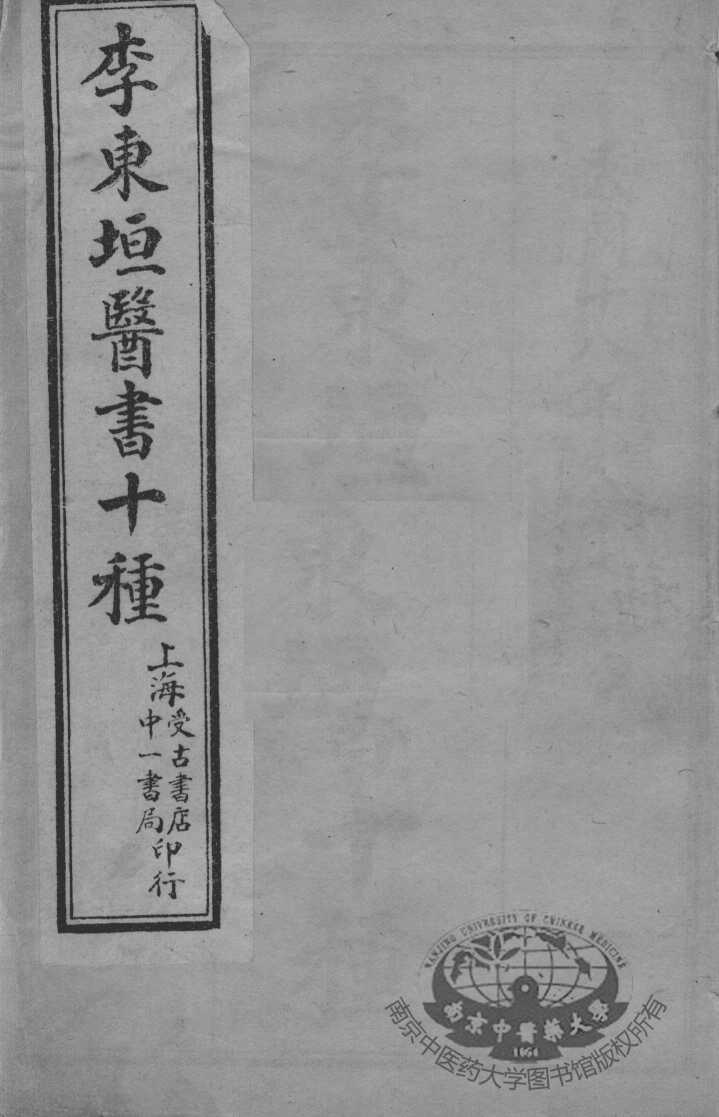 李東垣醫書十種
上海
受古書店
中一書局
印行
NANJING UNIVERSITY OF CHINESE MEDICINE
南京中醫藥大學
1954
南京中医药大学图书馆版权所有